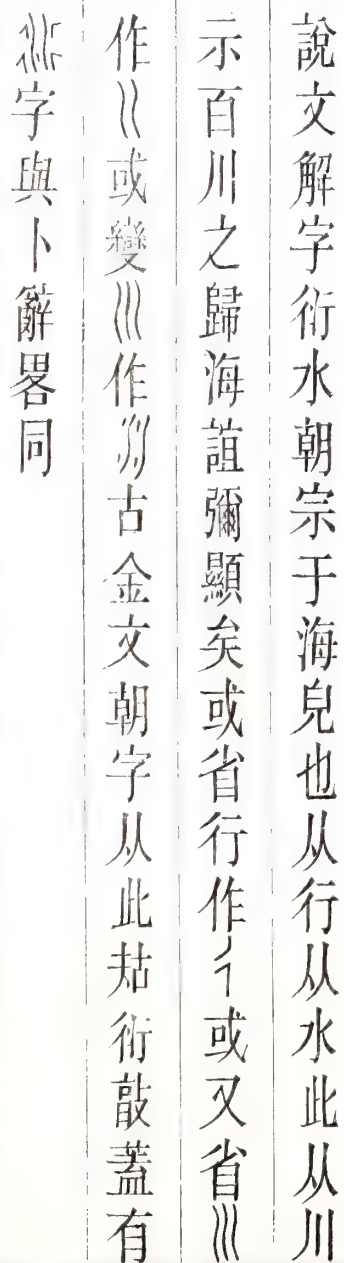 說文解字衍水朝宗于海皃也从行从水此从川
示百川之歸海誼彌顯矣或省行作彳或又省
作或變作古金文朝字从此姞衍蓋有
字與卜辭畧同